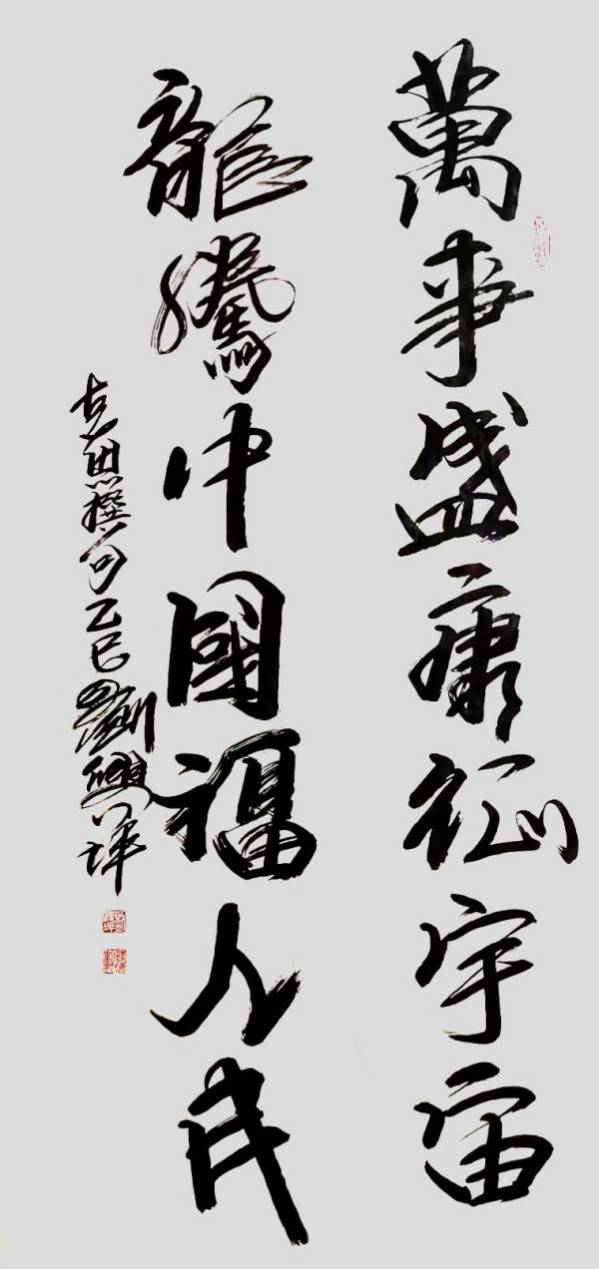 萬事盛康征宇宙
龍騰中國福人民
撰句乙巳劉